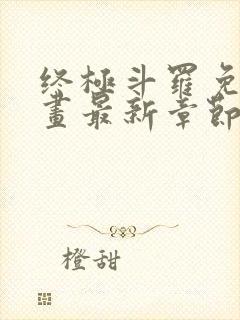 终極斗羅免
畫最新章節
橙甜